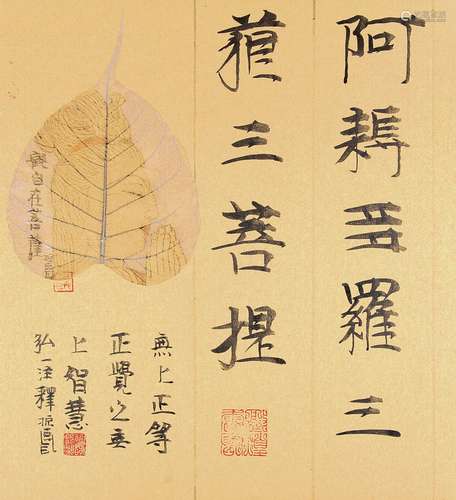 阿耨多羅三
藐三菩提
觀自在菩薩
無上正等
正覺之
上智慧
弘一注釋